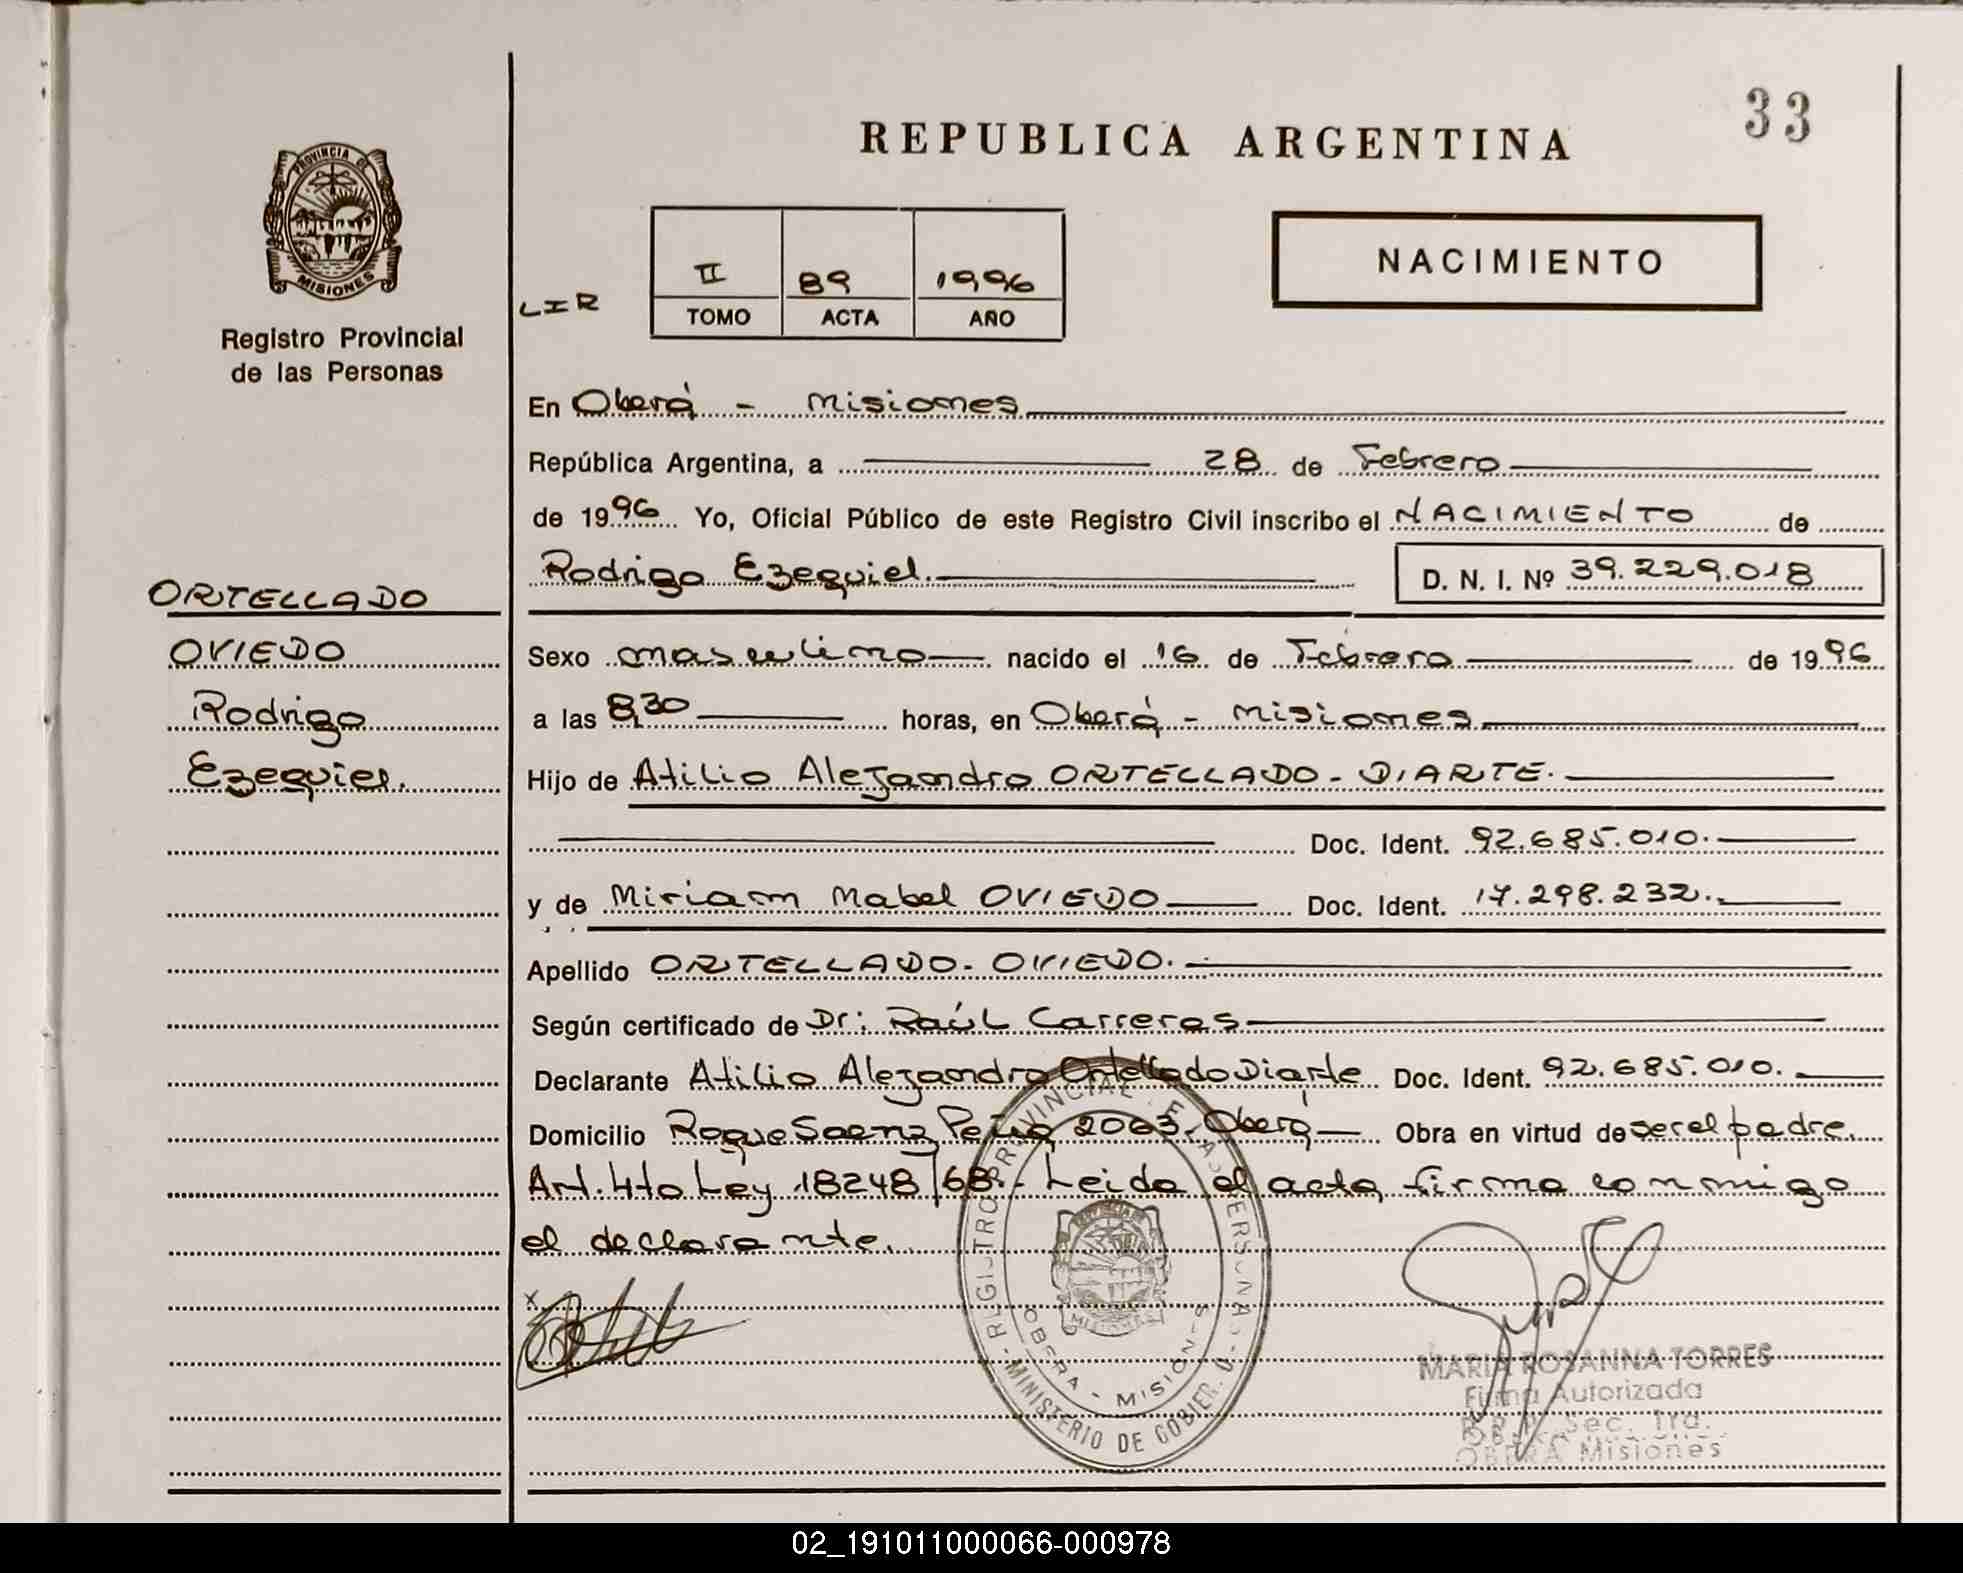 33
REPUBLICA ARGENTINA
PROVINCIA DE
MISIONES
Registro Provincial
de las Personas
LIR
II 89 1996
TOMO ACTA AÑO
NACIMIENTO
En Oberá - Misiones
República Argentina, a 28 de Febrero
de 1996 Yo, Oficial Público de este Registro Civil inscribo el NACIMIENTO de
Rodrigo Ezequiel. D. N. I. Nº 39.229.018
ORTELLADO
OVIEDO
Rodrigo
Ezequiel.
Sexo masculino nacido el 16 de Febrero de 1996
a las 8,30 horas, en Oberá - Misiones
Hijo de Atilio Alejandro ORTELLADO - DIARTE.
Doc. Ident. 92.685.010.
y de Miriam Mabel OVIEDO Doc. Ident. 17.298.232.
Apellido ORTELLADO. OVIEDO.
Según certificado de Dr: Raúl Carreras
Declarante Atilio Alejandro Ortellado Diarte Doc. Ident. 92.685.010.
Domicilio Roque Saenz Peña 2063. Oberá Obra en virtud de ser el padre.
Art. 4to Ley 18248/68.- Leida el acta, firma conmigo
el declarante.
x
REGISTRO PROVINCIAL DE LAS PERSONAS
OBERA - MISIONES
MINISTERIO DE GOBIERNO
MARIA ROSANNA TORRES
Firma Autorizada
Sec. 1ra.
OBERA Misiones
02_191011000066-000978